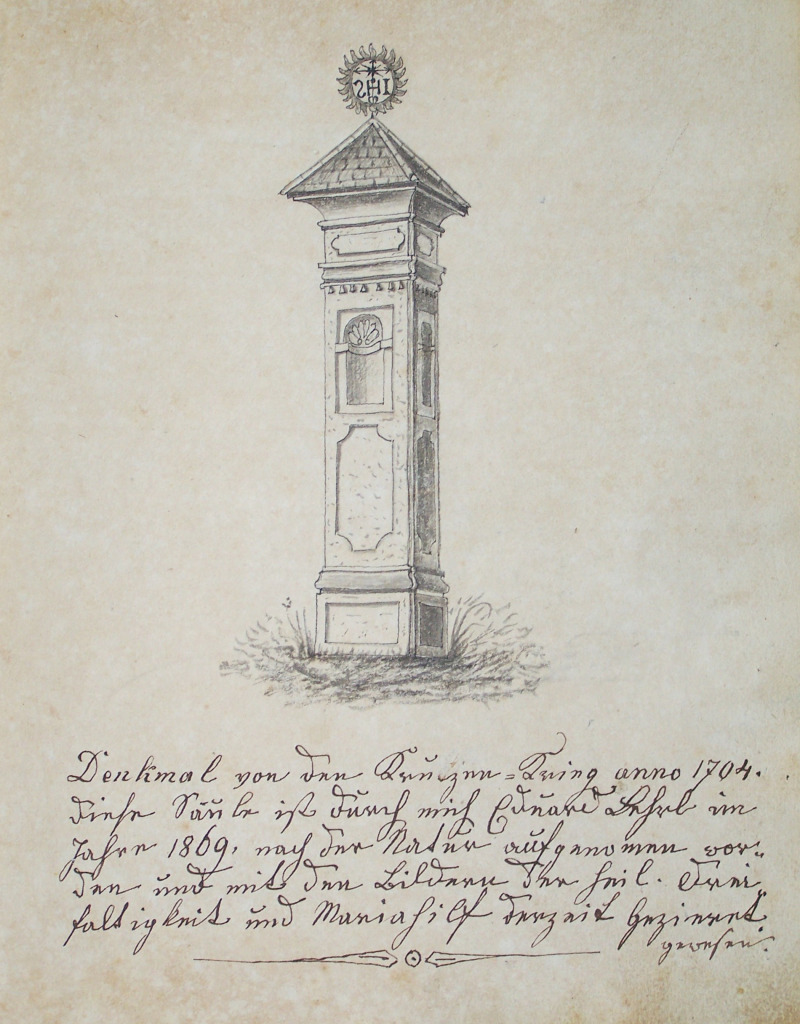 IHS
Denkmal von den Kruzen=Krieg anno 1704.
Diese Säule ist durch mich Eduard im
Jahre 1869, nach der Natur aufgenomen wor=
den und mit den Bildern der heil. Drei=
faltigkeit und Mariahilf derzeit geziert
gewesen.